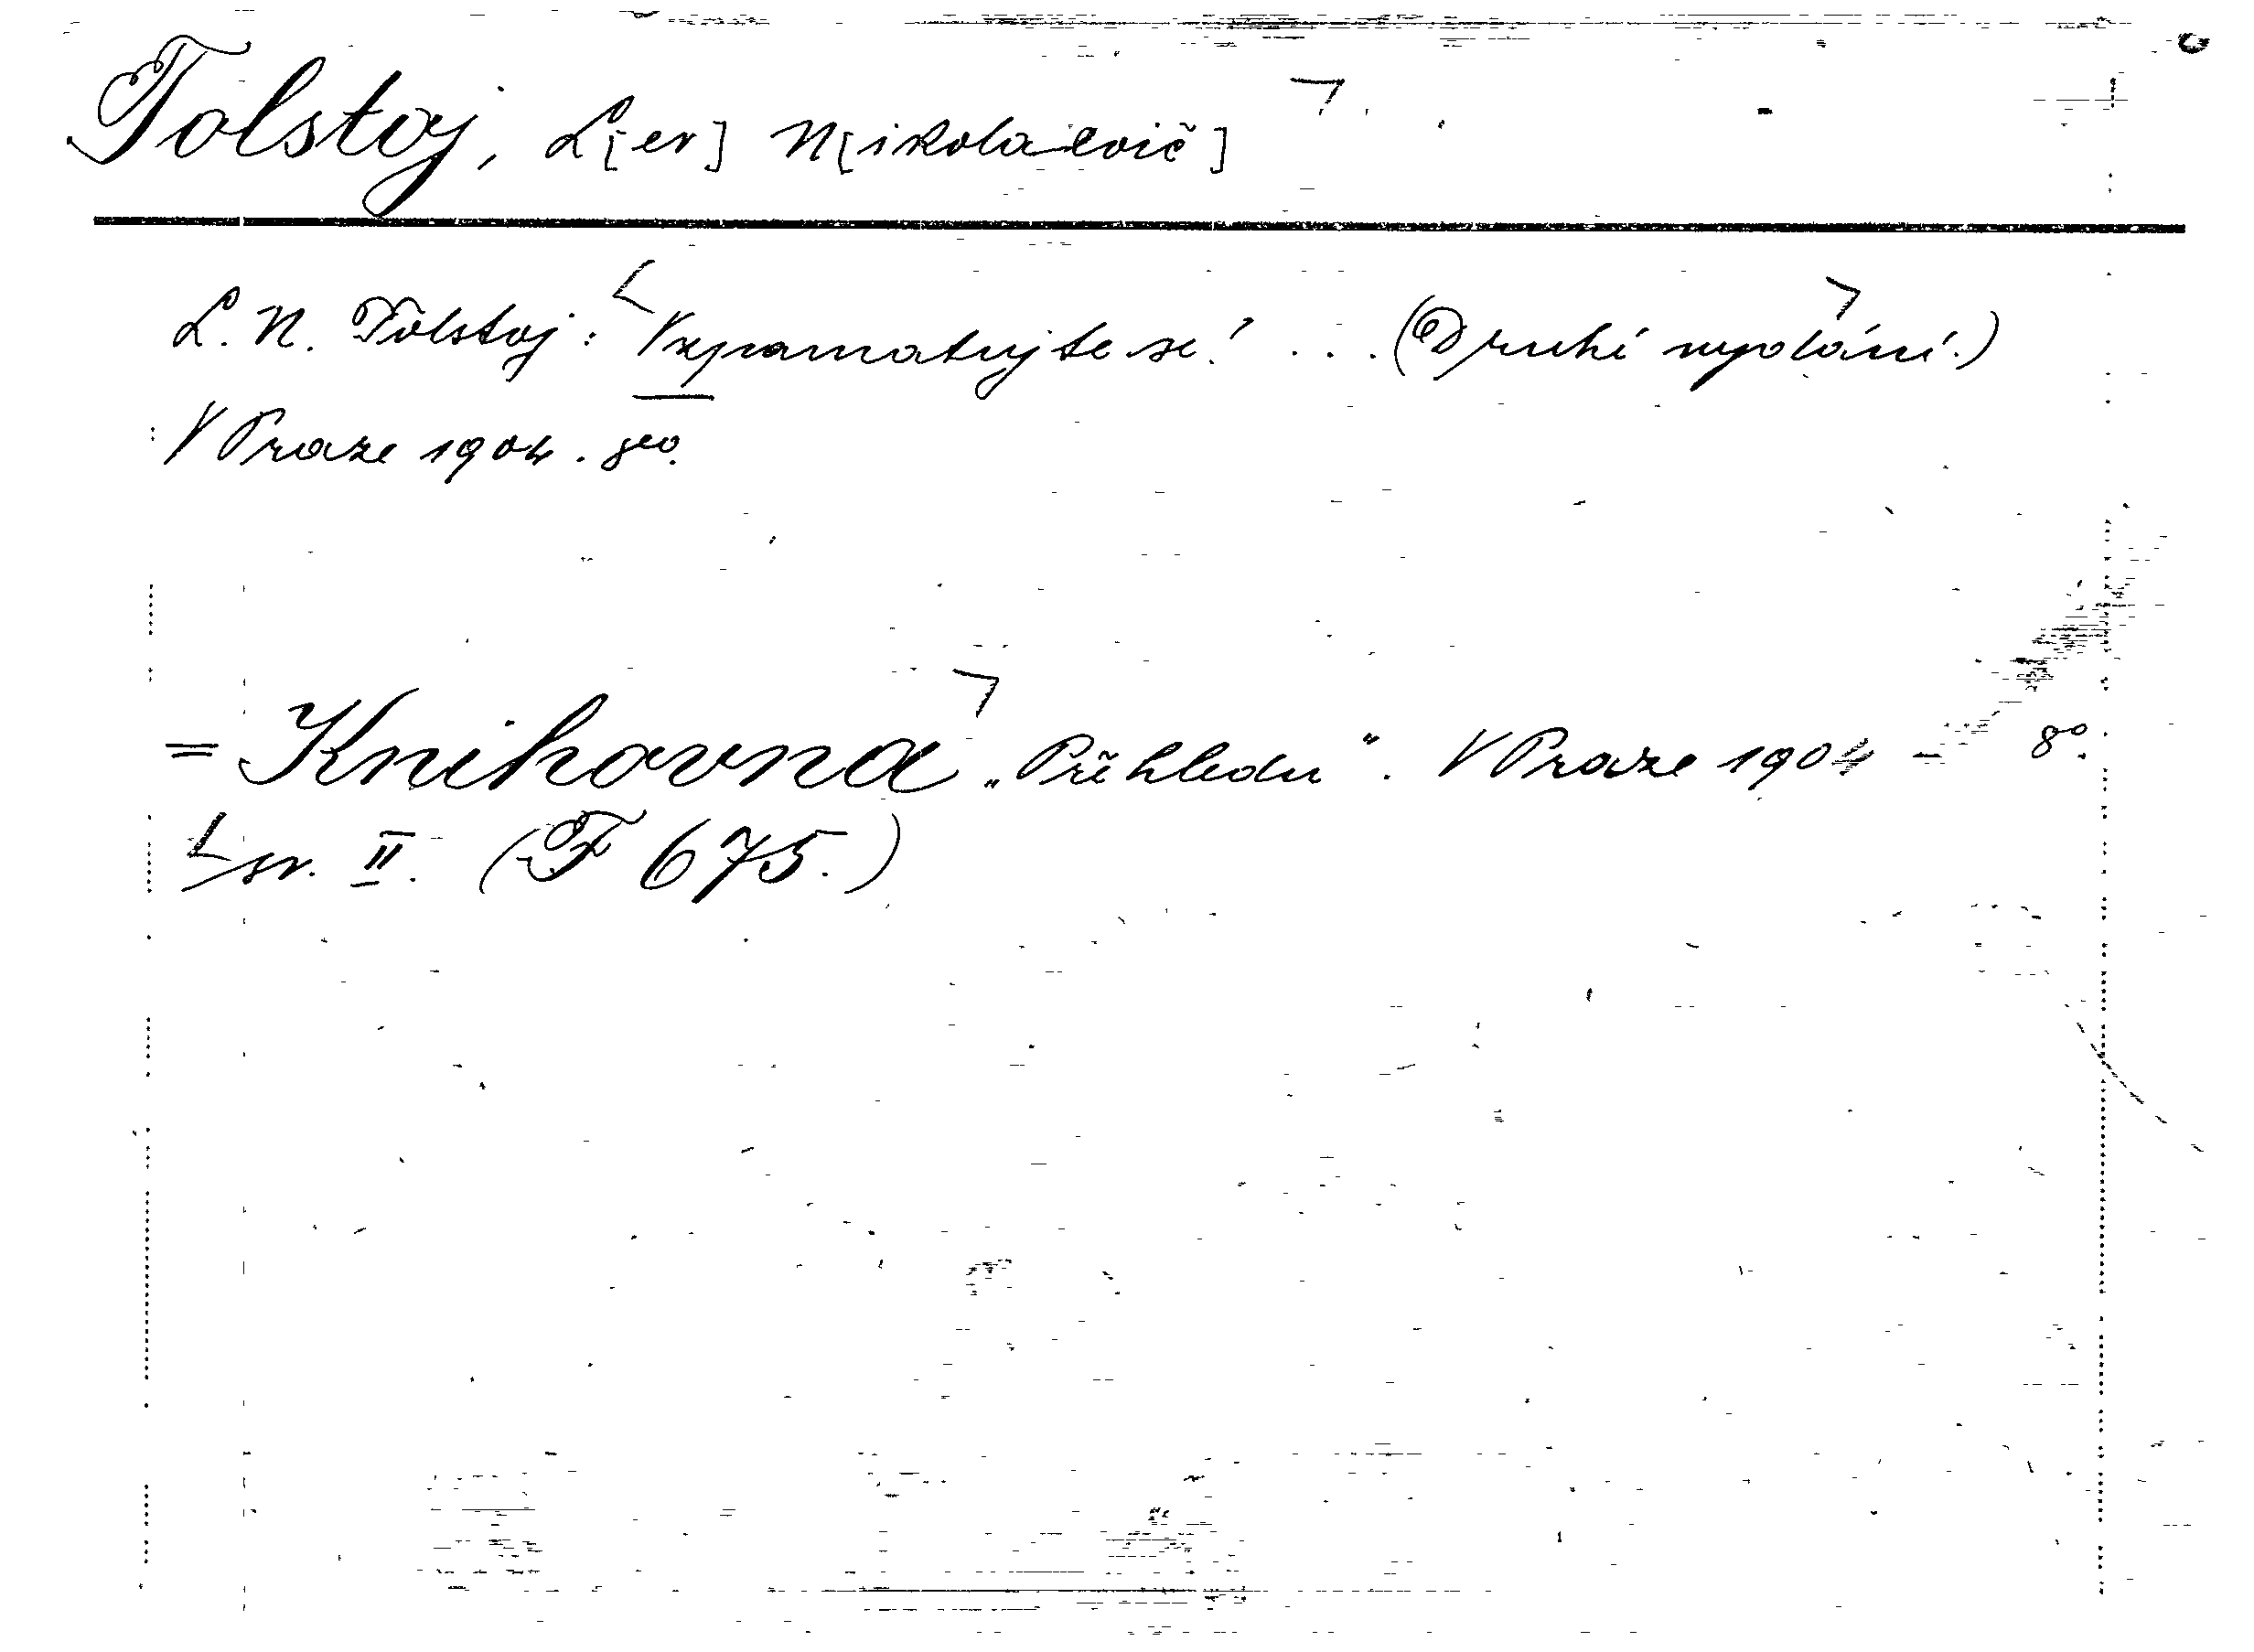 Tolstoj, L[ev] N[ikolaevič]
L. N. Tolstoj: Vzpamatujte se! ... (Druhé vydání.)
V Praze 1904. 8vo.
= Knihovna „Přehledu“. V Praze 1904 - 8o.
sv. II. (F 675.)